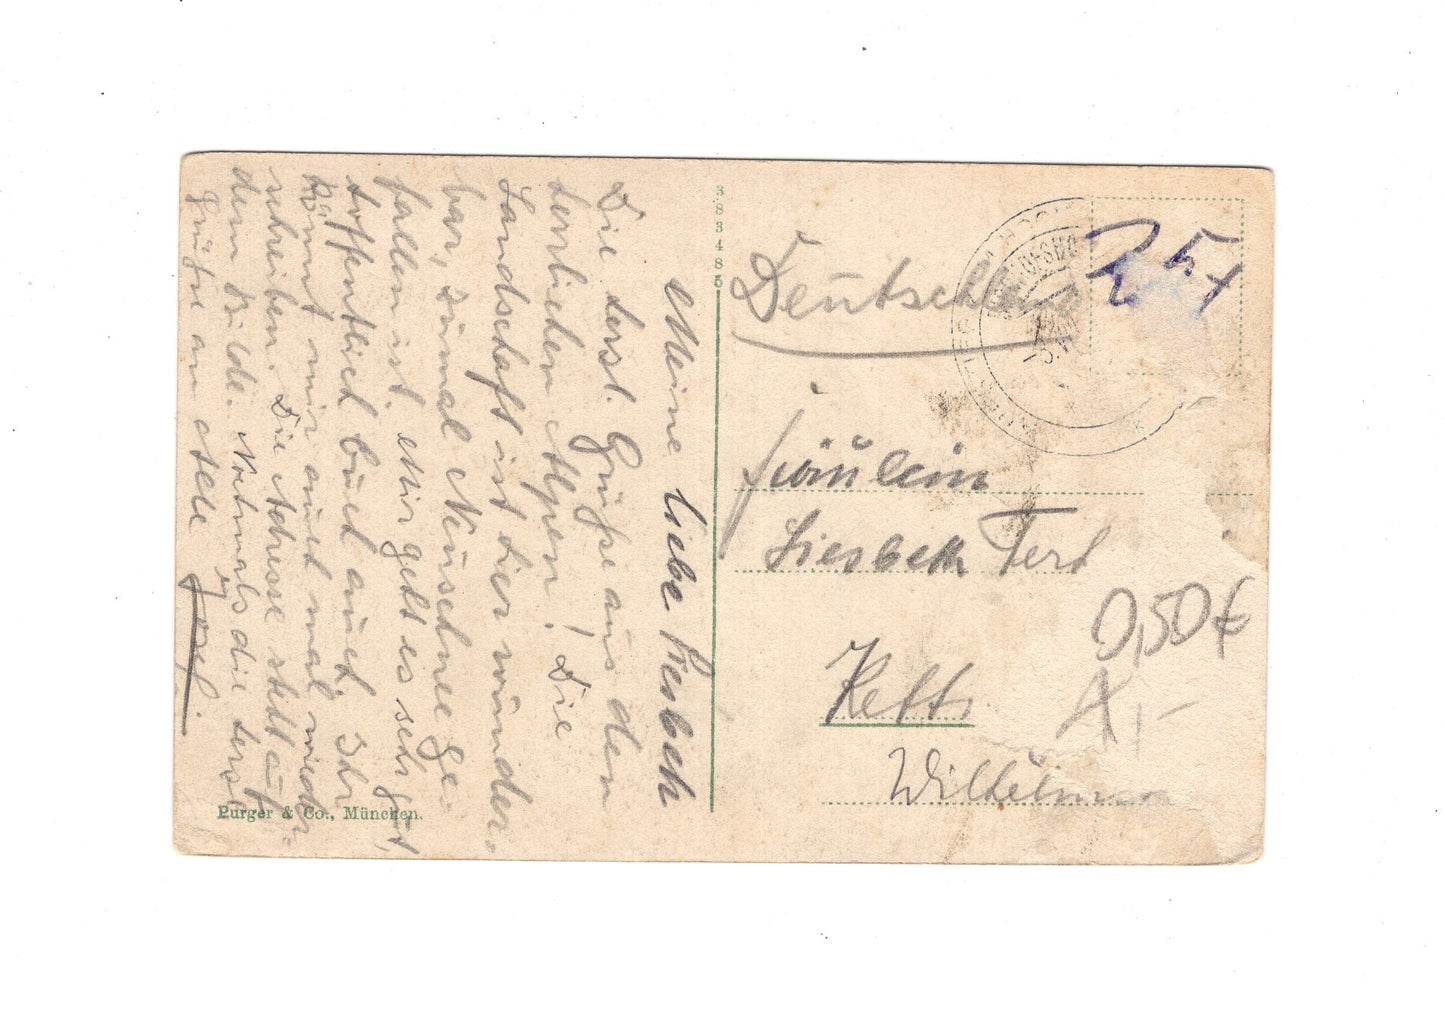 Meine liebe Liesbeth
Die herzl. Grüße aus den
herrlichen Alpen! Die
Landschaft ist hier wunder-
bar, zumal Neuschnee ge-
fallen ist. Mir geht es sehr gut,
hoffentlich Euch auch. Ihr
könnt mir auch mal wieder
schreiben. Die Adresse steht auf
dem Bilde. Nochmals die herzl.
Grüße an Alle
Josef.
Purger & Co., München.
383485
Deutschland
25
Fräulein
Liesbeth
0,50 €
1,-